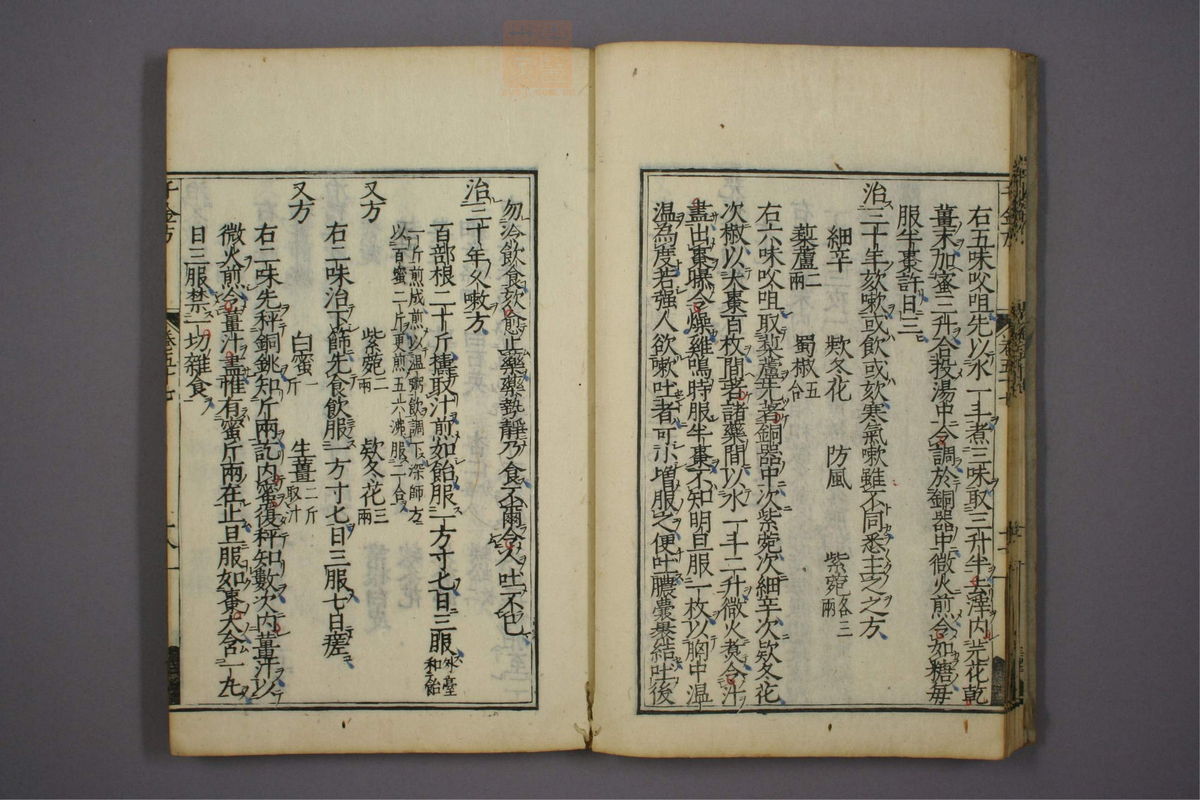 右五味㕮咀先以水一斗煮三味取三升半去滓内芫花乾
薑末加蜜三升合投湯中令調於銅器中微火煎令如糖毎
服半棗許日三
治三十年欬嗽或飲或欬寒氣嗽雖不同悉主之之方
細辛 欵冬花 防風 紫菀各三兩
藜蘆二兩 蜀椒五合
右六味㕮咀取藜蘆先著銅器中次紫菀次細辛次欵冬花
次椒以大棗百枚間著諸藥間以水一斗二升微火煮令汁
盡出棗曝令燥雞鳴時服半棗不知明旦服一枚以胸中温
温為度若强人欲嗽吐者可小增服之便吐膿囊裹結吐後
勿冷飲食欬愈止藥藥勢靜乃食不爾令人吐不已
治三十年久嗽方
百部根二十斤擣取汁煎如飴服一方寸七日三服外臺和飴
一斤煎成煎以温粥飲調下深師方
以白蜜二斤更煎五六沸服三合
又方 紫菀二兩 欵冬花三兩
右二味治下篩先食飲服一方寸七日三服七日瘥
又方 白蜜一斤 生薑二斤取汁
右二味先秤銅銚知斤兩訖内蜜復秤知數次内薑汁以
微火煎令薑汁盡惟有蜜斤兩在止旦服如棗大含一丸
日三服禁一切雜食
千金方 卷五十七